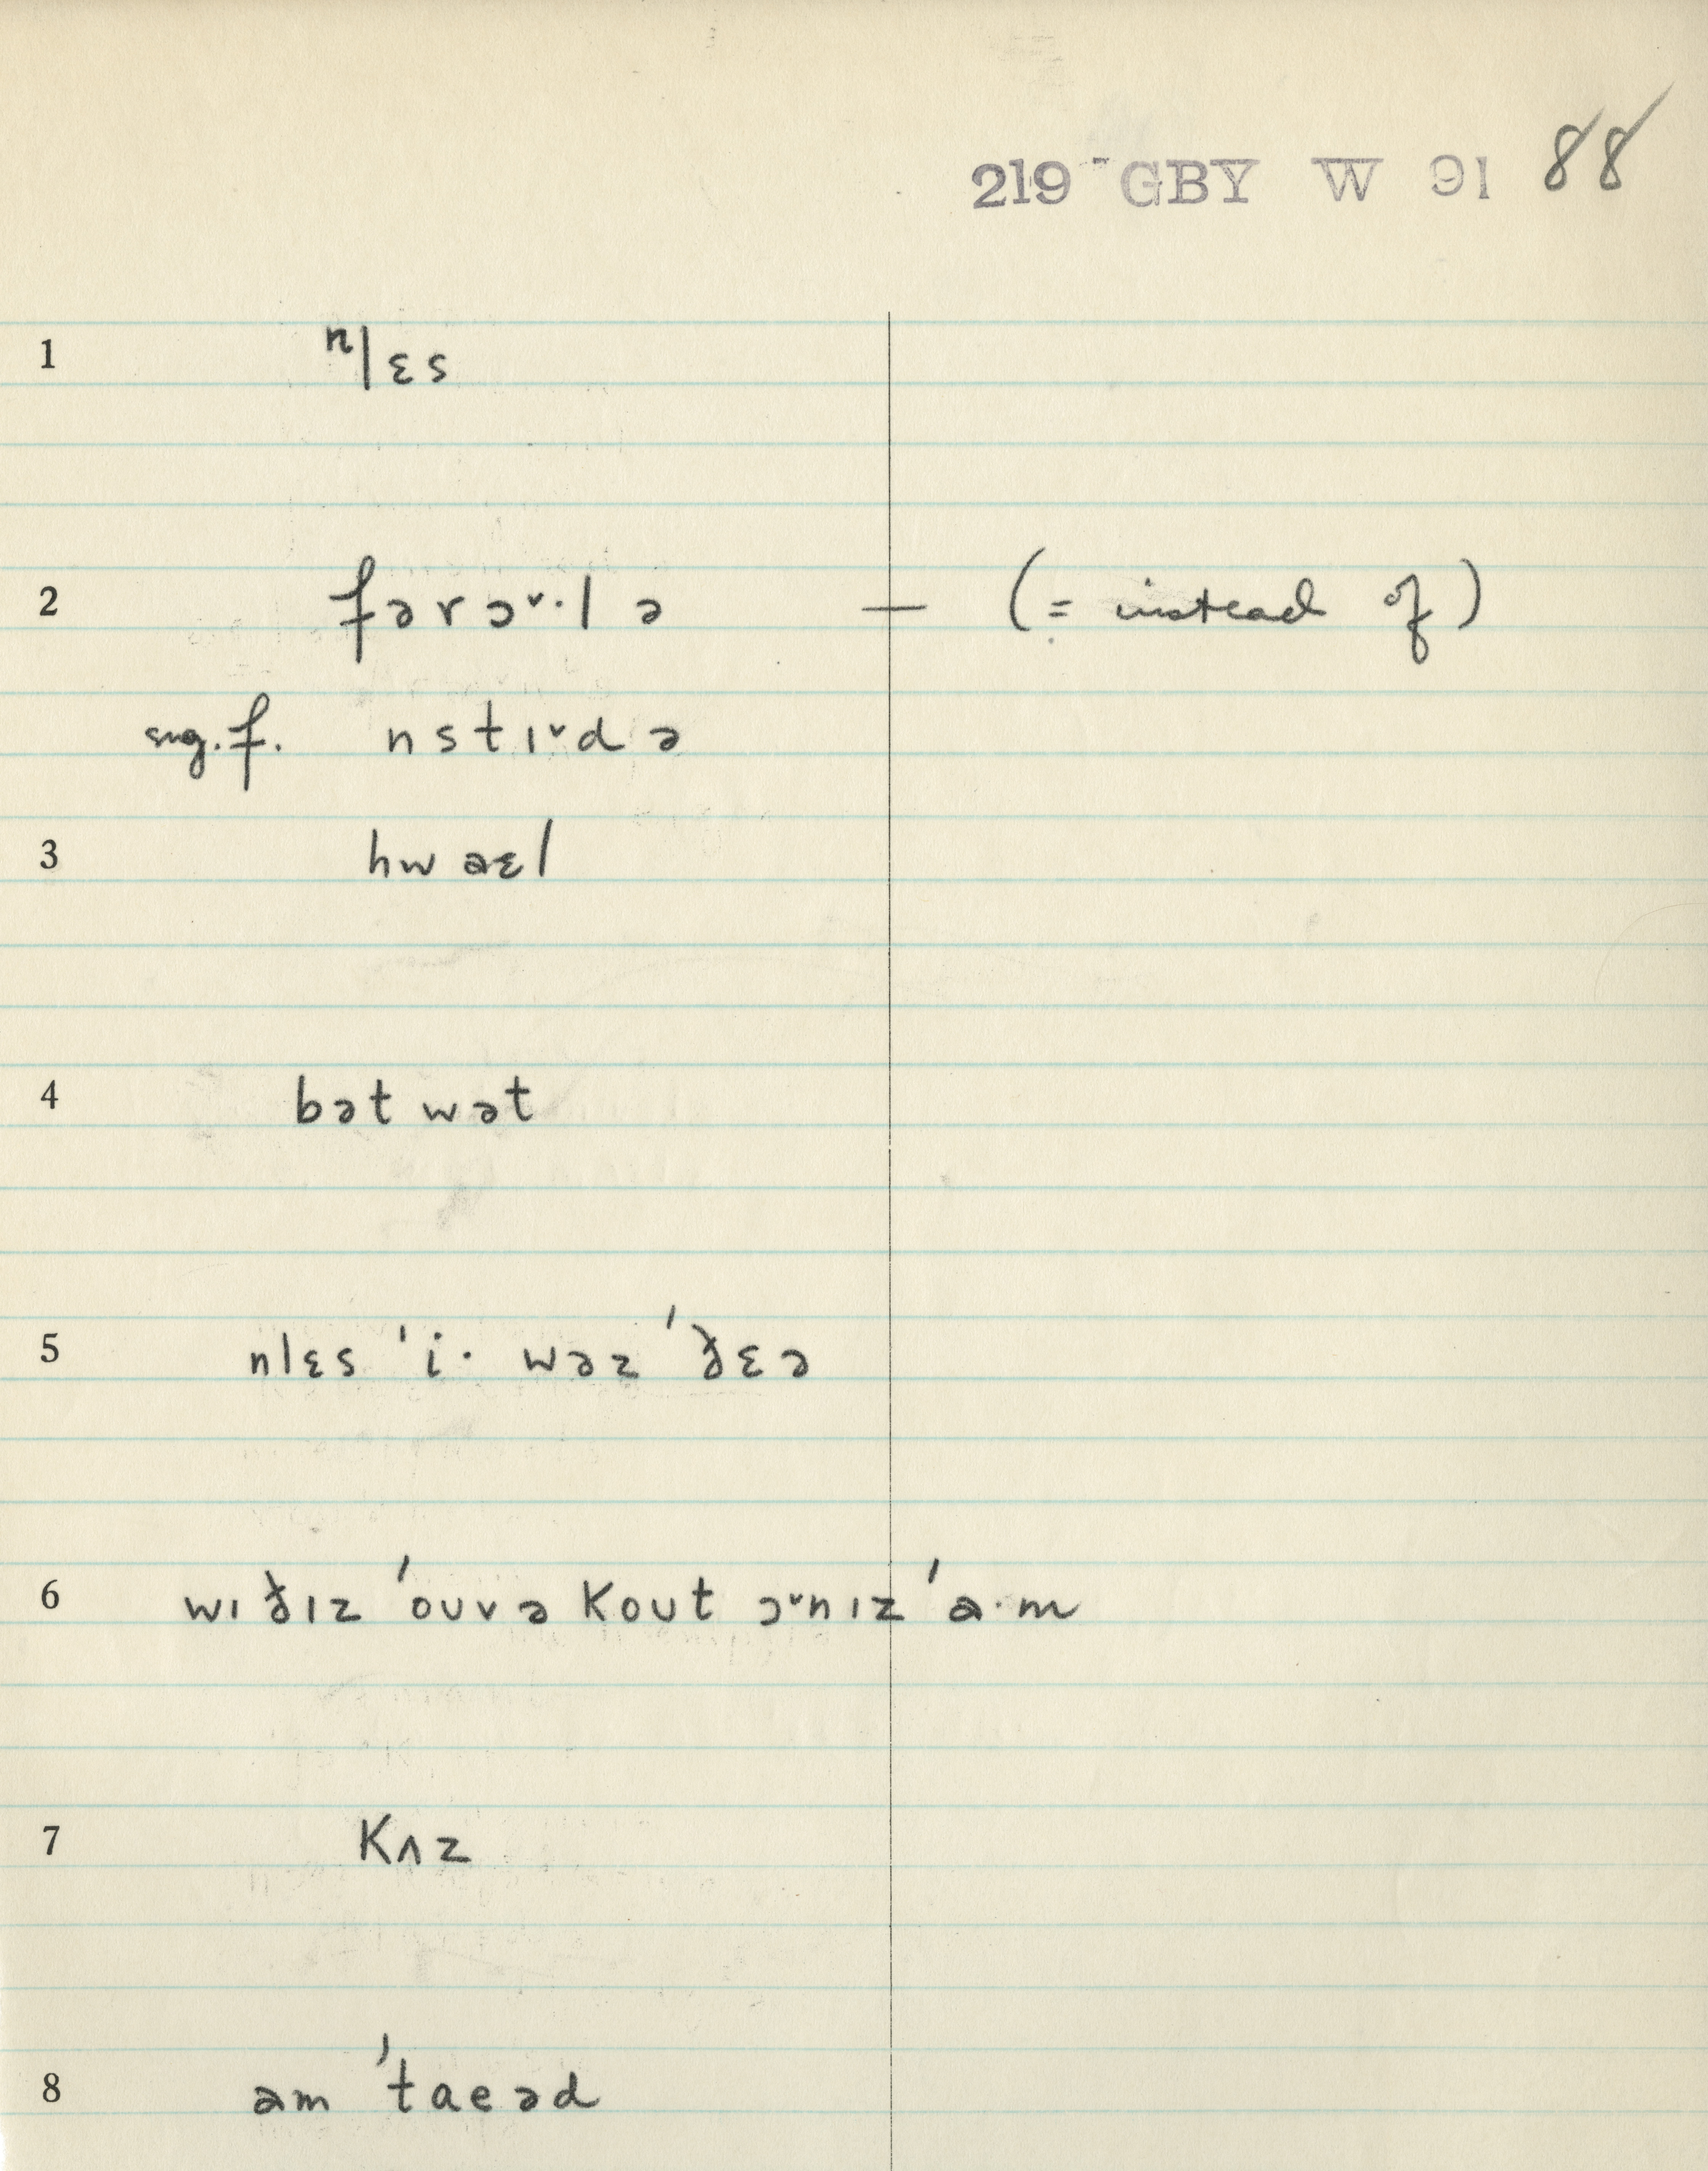 219 - GBY W 91 88
1 n|ɛs
2 fərɔ˅·lə — (= instead of)
sug. f. nstɪ˅də
3 hwaɛl
4 bət wət
5 nlɛs 'i· wəz 'ðɛə
6 wɪðɪz 'ouvəkout ɔ˅nɪz 'a·m
7 kʌz
8 am 'taeəd